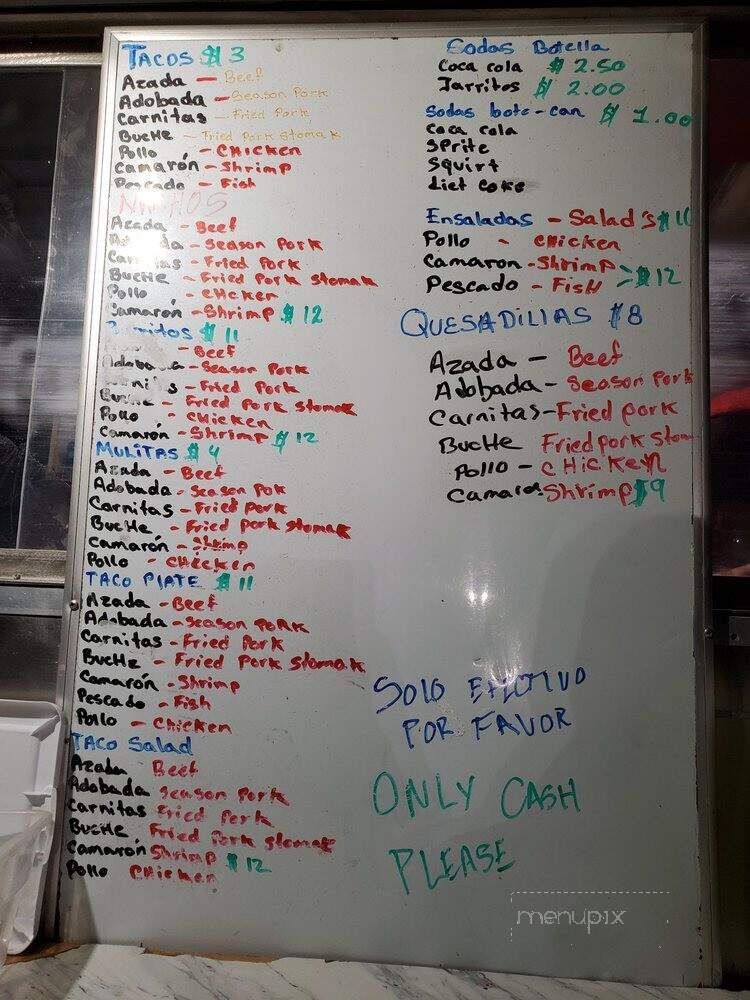 TACOS $3
Azada - Beef
Adobada - Season Pork
Carnitas - Fried Pork
BucHe - Fried Pork Stomak
Pollo - CHicken
Camarón - Shrimp
Pescado - Fish
NACHOS
Azada - Beef
- Season Pork
- Fried Pork
BucHe - Fried Pork Stomak
Pollo - CHcken
Camarón - Shrimp $12
$11
- Beef
- Season Pork
- Fried Pork
- Fried Pork Stomak
Pollo - CHicken
Camarón - Shrimp $12
MULITAS $4
Azada - Beef
Adobada - Season Pok
Carnitas - Fried Pork
BucHe - Fried Pork Stomak
Camarón - Shrimp
Pollo - CHicken
TACO PLATE $11
Azada - Beef
Adobada - Season Pork
Carnitas - Fried Pork
BucHe - Fried Pork Stomak
Camarón - Shrimp
Pescado - Fish
Pollo - Chicken
TACO Salad
Azada Beef
Adobada Season Pork
Carnitas Fried Pork
BucHe Fried Pork Stomak
Camarón Shrimp $12
Pollo CHicken
Sodas Botella
Coca cola $2.50
Jarritos $2.00
Sodas bote-can $1.00
Coca cola
Sprite
Squirt
diet coke
Ensaladas - Salad's $11
Pollo - CHicken
Camaron - Shrimp
Pescado - FisH > $12
QUESADILLAS $8
Azada - Beef
Adobada - Season Pork
Carnitas - Fried pork
BucHe Fried pork Stom
Pollo - CHicKen
Camaron Shrimp $9
SOLO EFECTIVO
POR FAVOR
ONLY CASH
PLEASE
menupix